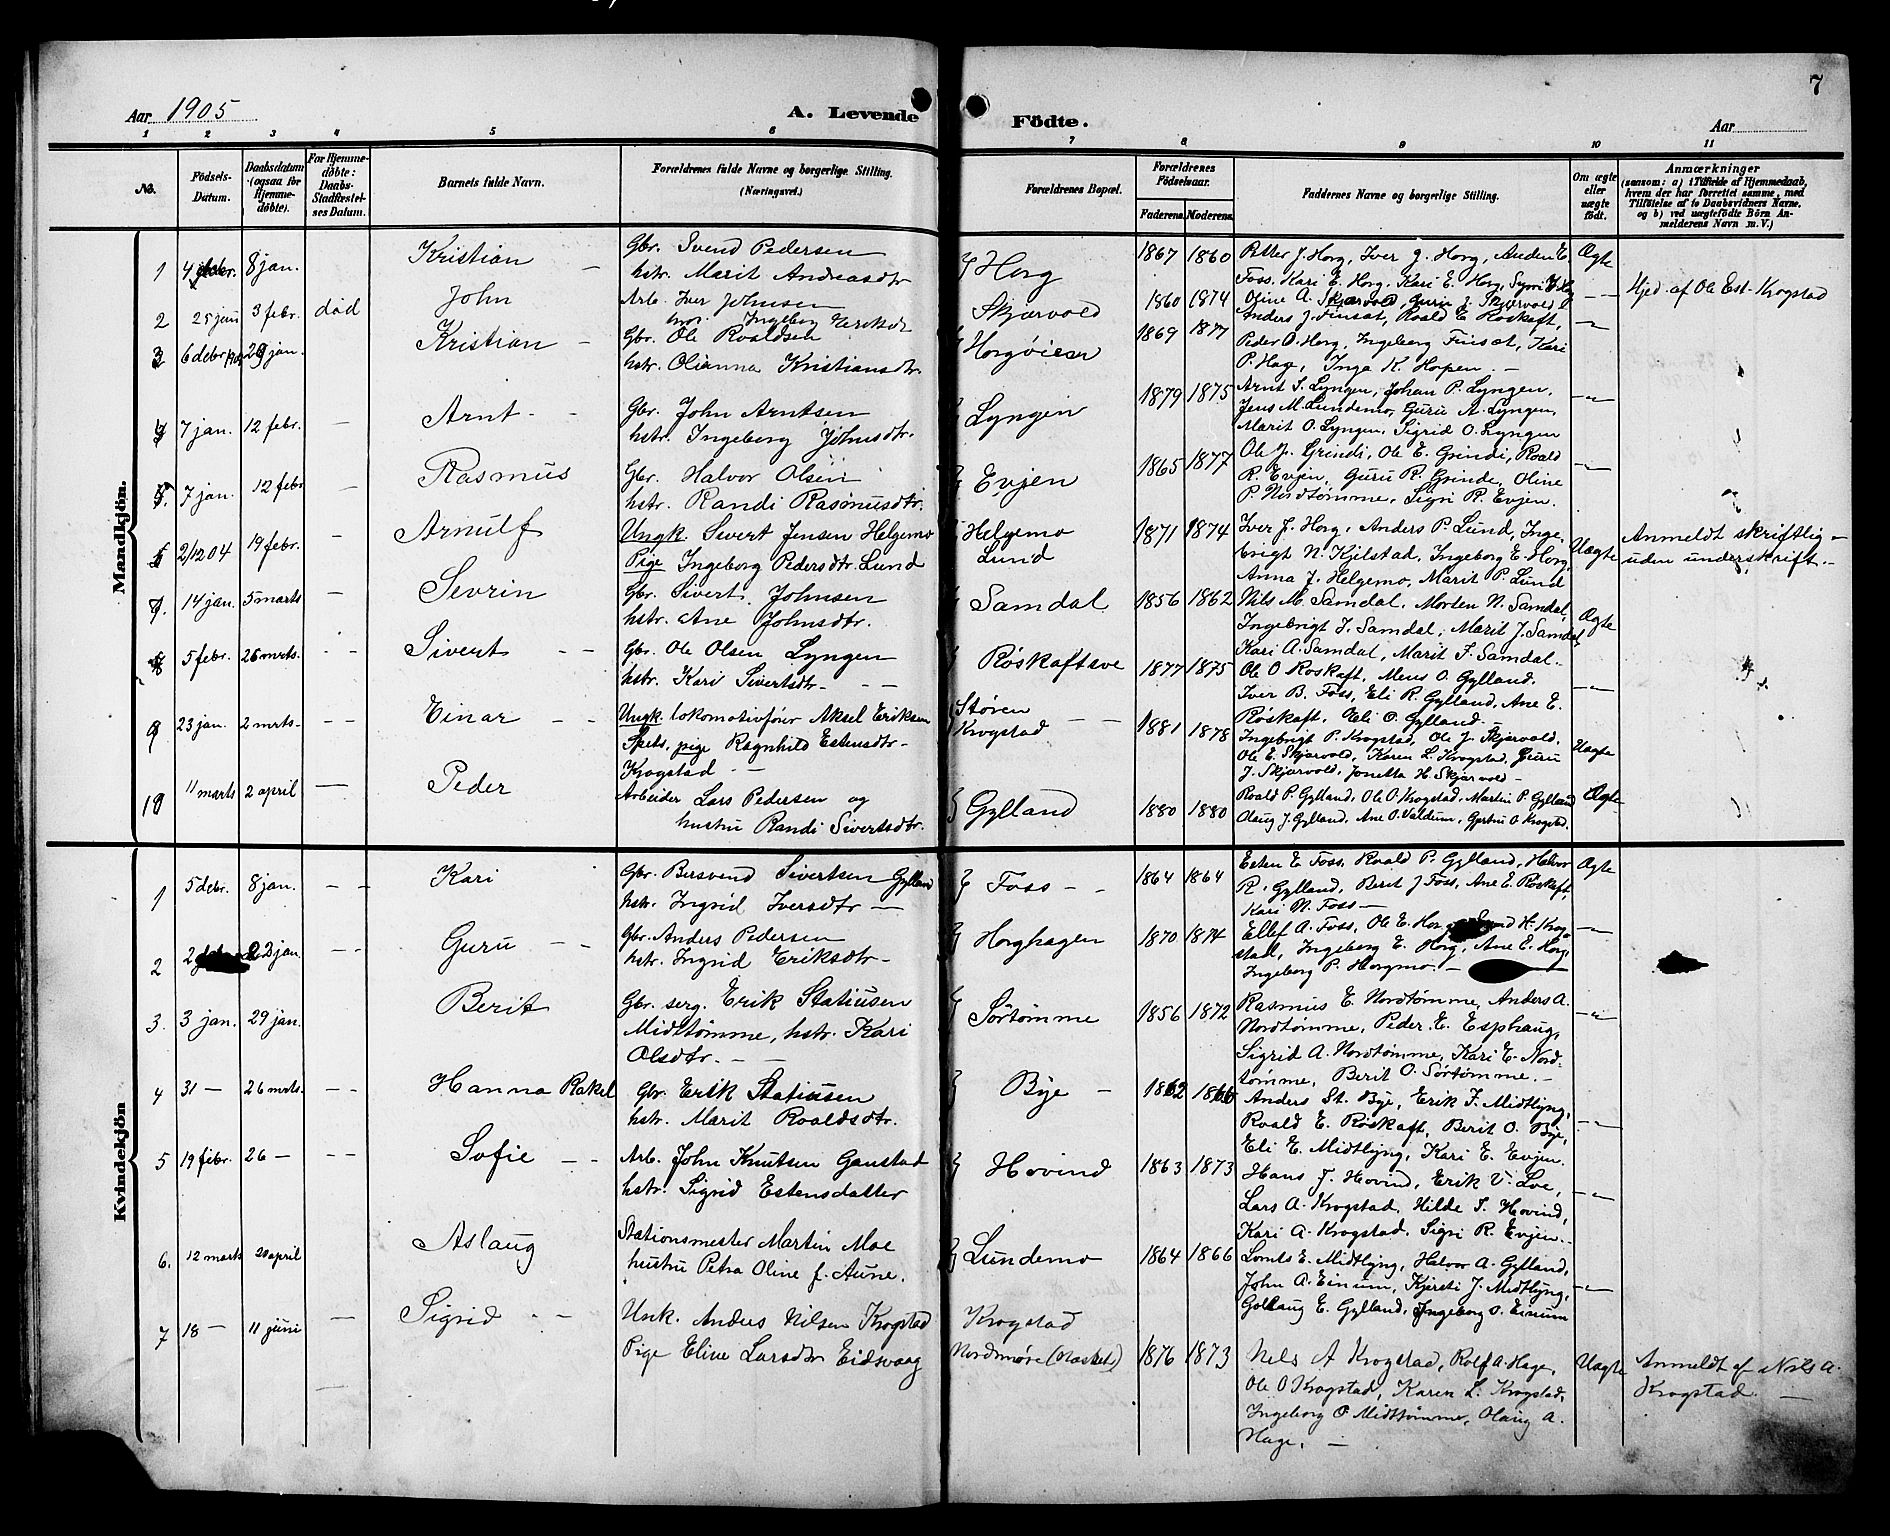 7
Aar 1905
A. Levende
Födte.
Aar
1 2 3 4 5 6 7 8 9 10 11
No.
Födsels-Datum.
Daabsdatum (ogsaa for Hjemmedøbte).
For Hjemmedøbte: Daabs-Stadfæstelses Datum.
Barnets fulde Navn.
Forældrenes fulde Navne og borgerlige Stilling. (Næringsvei.)
Forældrenes Bopæl.
Forældrenes Födselsaar.
Faderens. Moderens.
Faddernes Navne og borgerlige Stilling.
Om ægte eller uægte födt.
Anmærkninger
(saasom: a) i Tilfælde af Hjemmedaab, hvem der har forrettet samme, med Tilföielse af to Daabsvidners Navne, og b) ved uægtefödte Börn Anmelderens Navn m. V.)
Mandkjön.
1 4 debr. 8 jan. Kristian — Gbr. Svend Pedersen
hstr. Marit Andreasdtr
Horg 1867 1860 Petter J. Horg, Iver J. Horg, Anders E.
Foss. Kari E. Horg, Kari E. Horg, Ægte
2 25 jan 3 febr. død John Arb. Iver Johnsen
Skjærvold 1860 1874 Oline A. Skjærvold, Guru J. Skjærvold — Hjed. af Ole Est. Krogstad
3 6 debr 29 jan. Kristian — Gbr. Ole Roaldsen
hstr. Olianna Kristiansdtr.
Horgøien 1869 1877 Anders J. Finsat, Roald E. Röskaft,
Peder O. Horg, Ingeborg Finsat, Kari
P. Hage, Inga K. Hopen. —
4 7 jan. 12 febr. — Arnt Gbr. John Arntsen
hstr. Ingeborg Johnsdtr.
Lyngen 1879 1875 Arnt S. Lyngen, Johan P. Lyngen,
Jens M. Lundemo, Guru A. Lyngen,
Marit O. Lyngen, Sigrid O. Lyngen
5. 7 jan. 12 febr — Rasmus Gbr. Halvor Olsen
hstr. Randi Rasmusdtr.
Evjen 1865 1877 Ole J. Grindi, Ole E. Grindi, Roald
R. Evjen, Guru R. Grinde, Oline
P. Nordtømme, Sigri R. Evjen.
6 2/12 04 19 febr. — Arnulf Ungk. Sivert Jensen Helgemo
Pige Ingeborg Pedersdtr. Lund
Helgemo
Lund
1871 1874 Iver J. Horg, Anders P. Lund, Inge-
brigt N. Kjelstad, Ingeborg E. Horg,
Anna J. Helgemo, Marit P. Lund
Uægte Anmeldt skriftlig —
uden underskrift. —
7. 14 jan. 5 marts Sevrin Gbr. Sivert Johnsen
hstr. Ane Johnsdtr.
Samdal 1856 1862 Nils M. Samdal, Morten N. Samdal,
Ingebrigt J. Samdal, Marit J. Samdal
Kari A. Samdal, Marit F. Samdal.
Ægte
8 5 febr. 26 mrts. — Sivert — Gbr. Ole Olsen Lyngen
hstr. Kari Sivertsdtr. —
Röskaftsve 1877 1875 Ole O Roskaft, Mens O. Gylland.
Iver B. Foss, Eli R. Gylland, Ane E.
Röskaft, Eli O. Gylland. —
9 23 jan. 2 mrts. — Einar — Ungk. lokomotivfører Aksel Eriksen
pige Ragnhild Estensdtr —
Krogstad —
Støren
Krogstad
1881 1878 Ingebrigt P. Krogstad, Ole J. Skjærvold,
Ole E. Skjærvold, Karen L. Krogstad, Guru
J. Skjærvold, Jonetta H. Skjærvold —
Uægte
10 11 marts 2 april — Peder Arbeider Lars Pedersen og
hustru Randi Sivertsdtr.
Gylland 1880 1880 Roald P. Gylland, Ole O. Krogstad, Martin P. Gylland
Olaug J. Gylland, Ane O. Valdum, Gjertru O. Krogstad.
Ægte
Kvindekjön
1 5 debr. 8 jan. — Kari Gbr. Bersvend Sivertsen Gylland
hstr. Ingrid Iversdtr —
Foss — 1864 1864 Esten E. Foss, Roald P. Gylland, Halvor
R. Gylland, Berit J Foss, Ane E. Röskaft,
Kari N. Foss —
Ægte
2 22 jan. — Guru — Gbr. Anders Pedersen
hstr. Ingrid Eriksdtr —
Horghagen 1870 1874 Ellef A. Foss, Ole E. Horg, H. Krog-
stad, Ingeborg E. Horg, Ane E. Horg,
Ingeborg P. Horgmo. —
3. 3 jan. 29 jan. Berit Gbr. serg. Erik Statiusen
Midttømme, hstr. Kari
Olsdtr. —
Sørtømme 1856 1872 Rasmus E. Nordtømme, Anders A.
Nordtømme, Peder E. Esphaug,
Sigrid A. Nordtømme, Kari E. Nord-
tømme, Berit O. Sørtømme. —
4 31 — 26 mrts. — Hanna Rakel Gbr. Erik Statiusen
hstr. Marit Roaldsdtr.
Bye — 1862 1866 Anders St. Bye, Erik F. Midtlyng,
Roald E. Röskaft, Berit O. Bye,
Eli E. Midtlyng, Kari E. Evjen.
5 19 febr. 26 — Sofie — Arb. John Knutsen Ganstad
hstr. Sigrid Estensdatter
Hovind 1863 1873 Hans J. Hovind, Erik V. Loe,
Lars A. Krogstad, Hilde S. Hovind,
Kari A. Krogstad. Sigri R. Evjen.
6. 12 marts 20 april Aslaug Stationsmester Martin Moe
hustru Petra Oline f. Aune.
Lundemo 1864 1866 Lornts E. Midtlyng, Halvor A. Gylland,
John A. Einum, Kjersti J. Midtlyng,
Gollaug E. Gylland, Ingeborg O. Einum
7 18 — 11 juni — Sigrid — Unk. Anders Nilsen Krogstad
Pige Eline Larsdtr Eidsvaag
Krogstad
Nordmøre (Næsset)
1876 1873 Nels A Krogstad, Rolf A. Hage,
Ole O Krogstad, Karen L. Krogstad,
Ingeborg O. Midttømme, Olaug A.
Hage. —
Uægte Anmeldt af Nils A.
Krogstad. —